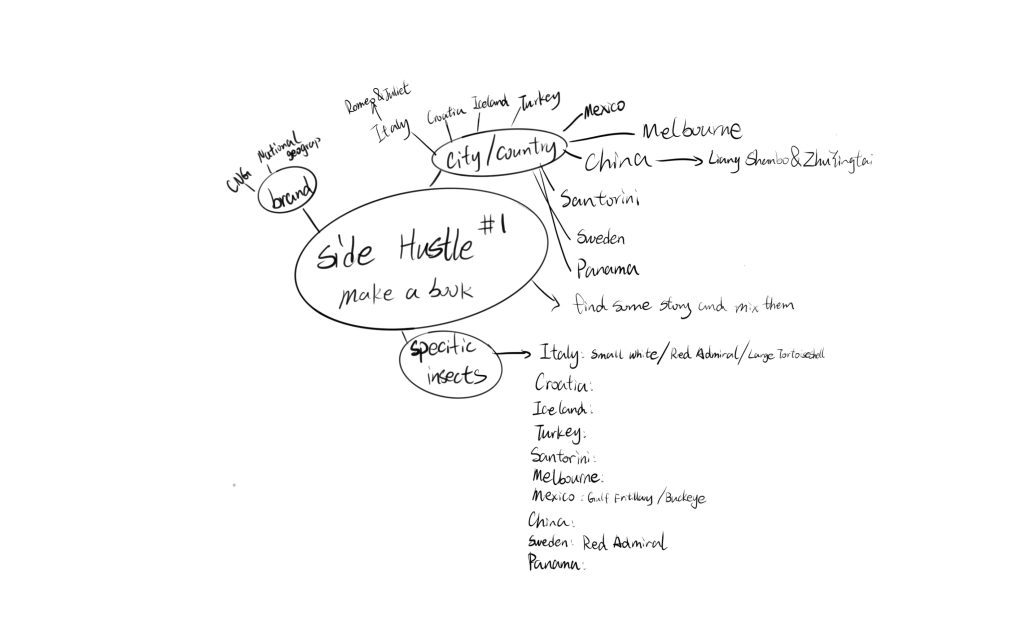 Romeo & Juliet
Italy
Croatia
Iceland
Turkey
Mexico
Melbourne
city/country
China
Liang Shanbo & Zhu Yingtai
Santorini
Sweden
Panama
National
geograp
brand
side Hustle #1
make a book
find some story and mix them
specific
insects
Italy: Small white/Red Admiral/Large Tortoiseshell
Croatia:
Iceland:
Turkey:
Santorini:
Melbourne:
Mexico: Gulf Fritillary/Buckeye
China:
Sweden: Red Admiral
Panama: